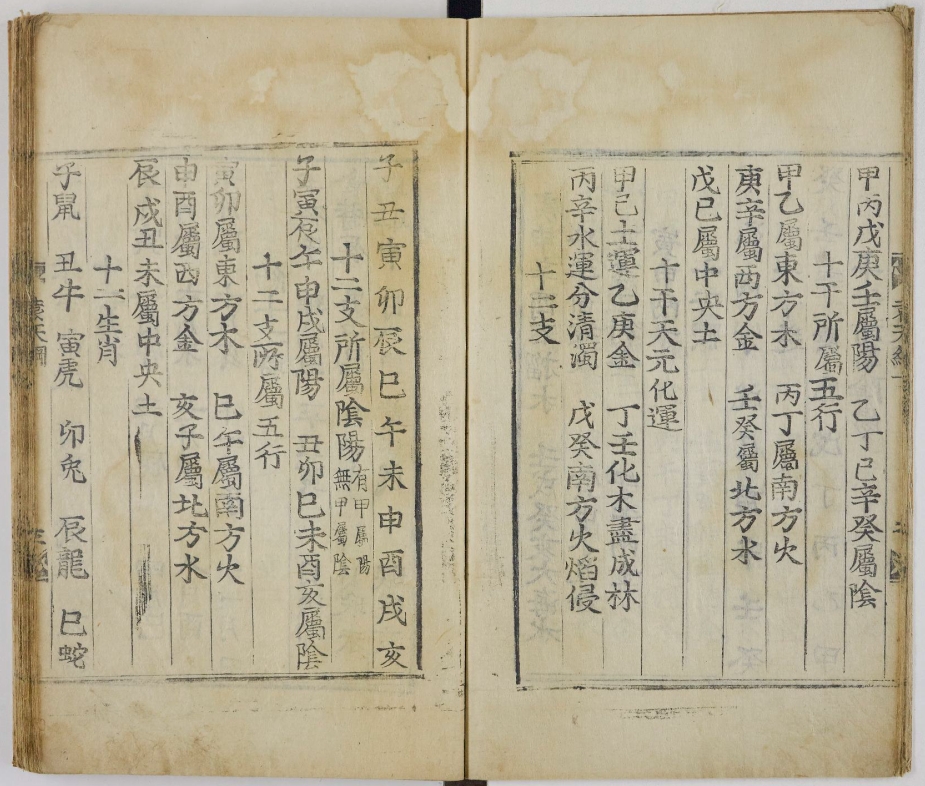 甲丙戊庚壬屬陽 乙丁己辛癸屬陰
十干所屬五行
甲乙屬東方木 丙丁屬南方火
庚辛屬西方金 壬癸屬北方水
戊巳屬中央土
十干天元化運
甲己土運乙庚金 丁壬化木盡成林
丙辛水運分清濁 戊癸南方火熖侵
十二支
子丑寅卯辰巳午未申酉戌亥
十二支所屬陰陽 有甲屬陽 無甲屬陰
子寅辰午申戌屬陽 丑卯巳未酉亥屬陰
十二支所屬五行
寅卯屬東方木 巳午屬南方火
申酉屬西方金 亥子屬北方水
辰戌丑未屬中央土
十二生肖
子鼠 丑牛 寅虎 卯兔 辰龍 巳蛇